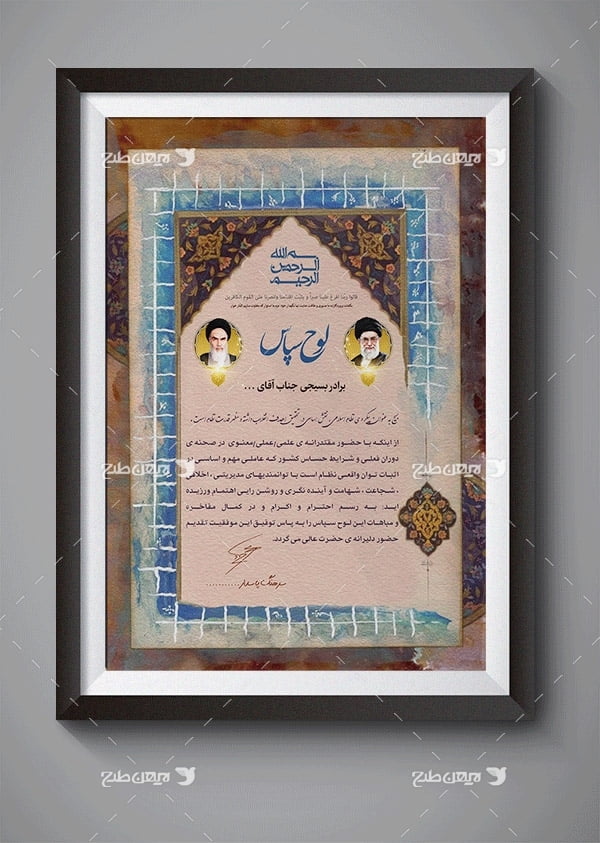 میهن طرح
میهن طرح
بسم الله
الرحمن
الرحیم
قالوا ربنا افرغ علینا صبراً و ثبت اقدامنا وانصرنا علی القوم الکافرین
لوح سپاس
برادر بسیجی جناب آقای ...
از اینکه با حضور مقتدرانه ی علمی/عملی/معنوی در صحنه ی
دوران فعلی و شرایط حساس کشور که عاملی مهم و اساسی در
اثبات توان واقعی نظام است با توانمندیهای مدیریتی، اخلاقی
، شجاعت ، شهامت و آینده نگری و روشن رایی اهتمام ورزیده
اید؛ به رسم احترام و اکرام و در کمال مفاخره
و مباهات این لوح سپاس را به پاس توفیق این موفقیت تقدیم
حضور دلیرانه ی حضرت عالی می گردد.
سرهنگ پاسدار............
میهن طرح
میهن طرح
میهن طرح
میهن طرح